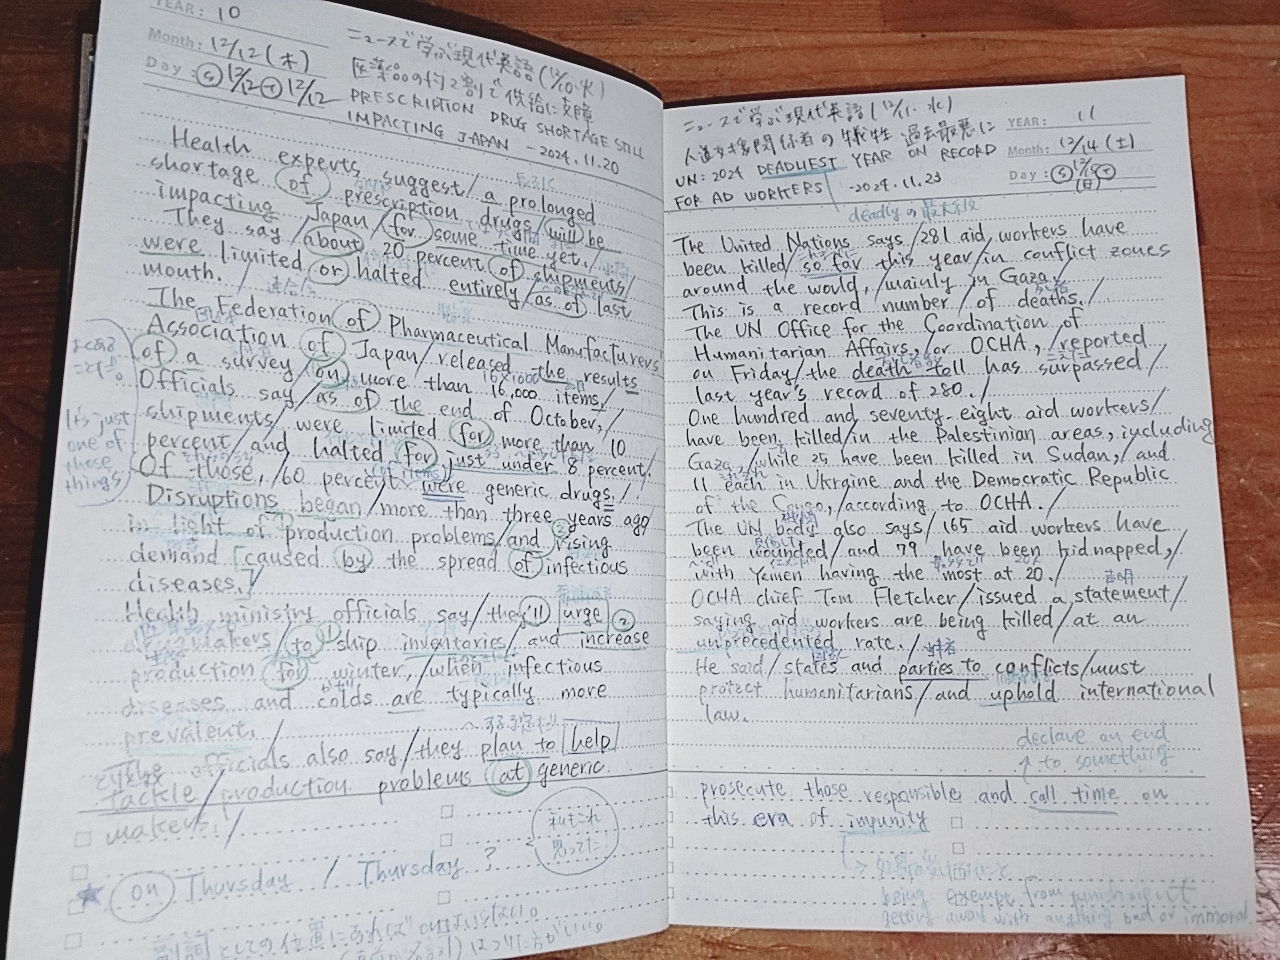 YEAR: 10
Month: 12/12 (木)
Day:
12/12
ニュースで学ぶ現代英語 (12/10. 火)
医薬品の約2割で供給に支障
PRESCRIPTION DRUG SHORTAGE STILL
IMPACTING JAPAN - 2024.11.20
Health experts suggest / a prolonged
shortage of prescription drugs / will be
impacting Japan / for some time yet. /
They say / about 20 percent of shipments /
were limited or halted entirely / as of last
month. /
The Federation of Pharmaceutical Manufacturers'
Association of Japan / released the results
of a survey / on more than 16,000 items. /
Officials say / as of the end of October, /
shipments / were limited for more than 10
percent / and halted for just under 8 percent. /
Of those, / 60 percent were generic drugs. /
Disruptions began / more than three years ago /
in light of production problems / and rising
demand [caused by the spread of infectious
diseases.] /
Health ministry officials say / they'll urge
makers / to ship inventories / and increase
production for winter, / when infectious
diseases and colds are typically more
prevalent. /
The officials also say / they plan to help
tackle / production problems at generic
makers. /
It's just
one of
those
things
on Thursday / Thursday ?
私もこれ
思ってた
ニュースで学ぶ現代英語 (12/11. 水)
人道支援関係者の犠牲 過去最悪に
UN: 2024 DEADLIEST YEAR ON RECORD
FOR AD WORKERS - 2024.11.23
YEAR: 11
Month: 12/14 (土)
Day:
deadlyの最上級
The United Nations says / 281 aid workers have
been killed / so far this year / in conflict zones
around the would, / mainly in Gaza. /
This is a record number / of deaths. /
The UN Office for the Coordination of
Humanitarian Affairs, / or OCHA, / reported
on Friday / the death toll has surpassed /
last year's record of 280. /
One hundred and seventy-eight aid workers /
have been killed / in the Palestinian areas, including
Gaza, / while 25 have been killed in Sudan, / and
11 each in Ukraine and the Democratic Republic
of the Congo, / according to OCHA. /
The UN body also says / 165 aid workers have
been wounded / and 79 have been kidnapped, /
with Yemen having the most at 20. /
声明
OCHA chief Tom Fletcher / issued a statement /
saying aid workers are being killed / at an
unprecedented rate. /
He said / states and parties to conflicts / must
protect humanitarians / and uphold international
law.
declare an end
to something
prosecute those responsible and call time on
this era of impunity
being exempt from punishment
getting away with anything bad or immoral